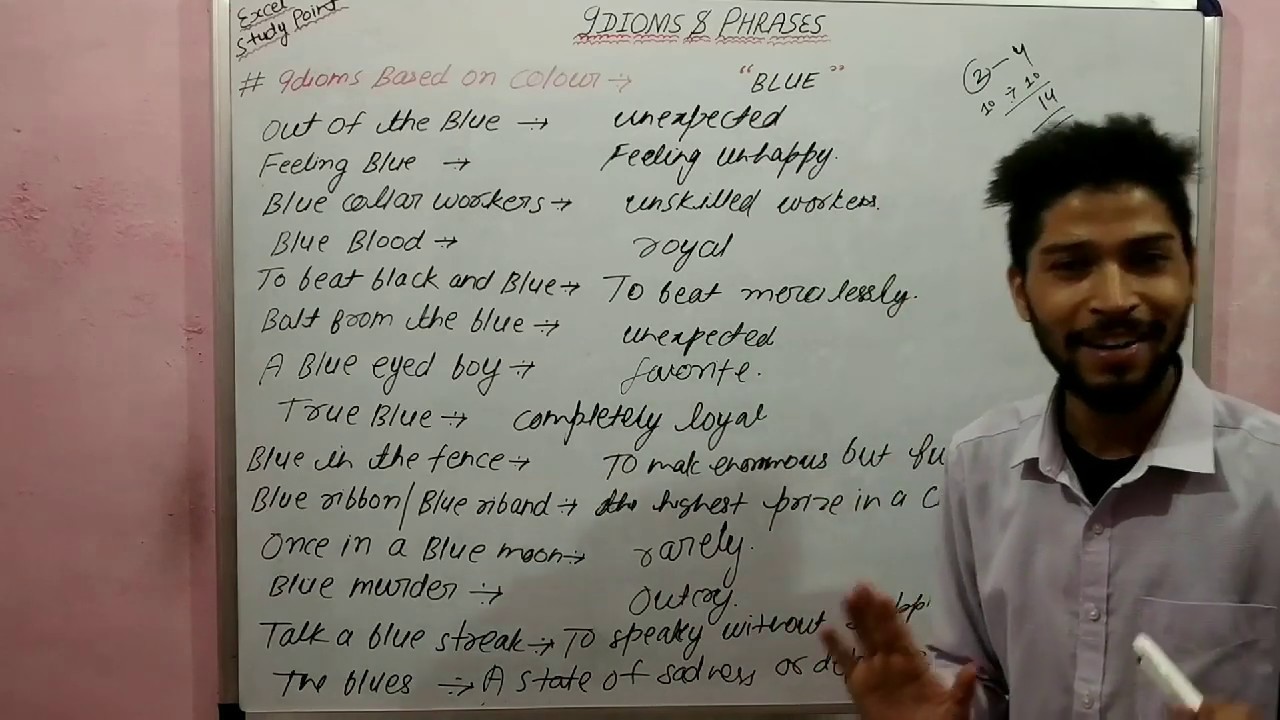 Excel
Study Point
IDIOMS & PHRASES
# Idioms Based on Colour → "BLUE"
2 - 4
10 ÷ 10
14
Out of the Blue → unexpected
Feeling Blue → Feeling Unhappy.
Blue collar workers → unskilled workers.
Blue Blood → royal
To beat black and Blue → To beat mercilessly.
Bolt from the blue → unexpected
A Blue eyed boy → favorite.
True Blue → completely loyal
Blue in the fence → To make enormous but fu
Blue ribbon/Blue riband → the highest prize in a C
Once in a Blue moon → rarely.
Blue murder → Outcry.
Talk a blue streak → To speak without
The blues → A state of sadness or de